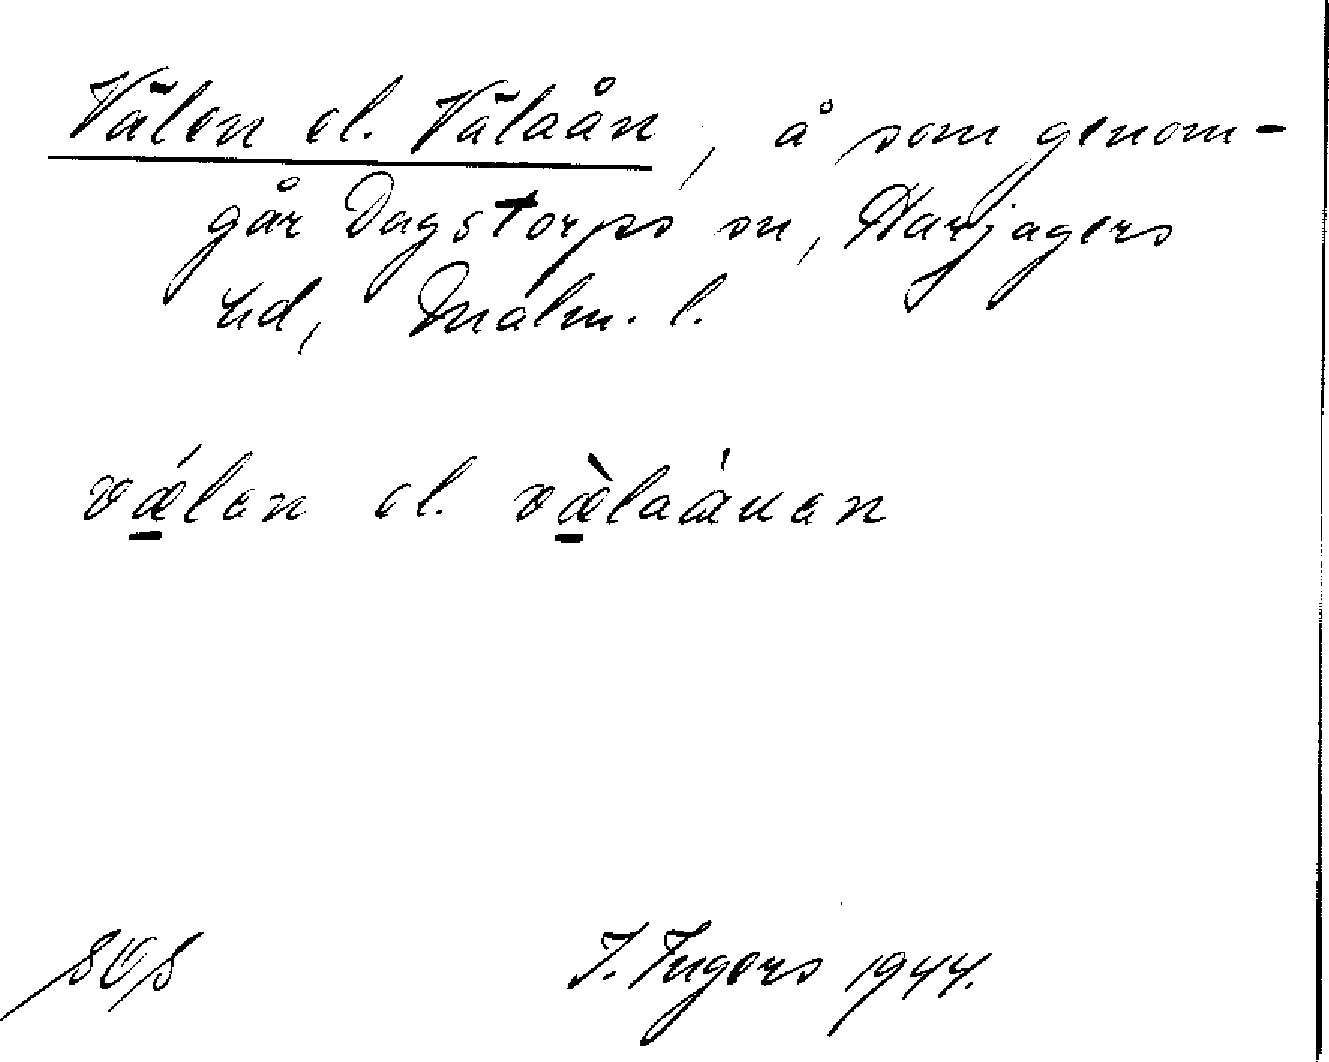 Välen el. Välaån, å som genom-
går Dagstorps sn, Harjagers
hd, Malm. l.
vǽlen el. væ̀laåuen
I. Ingers 1944.